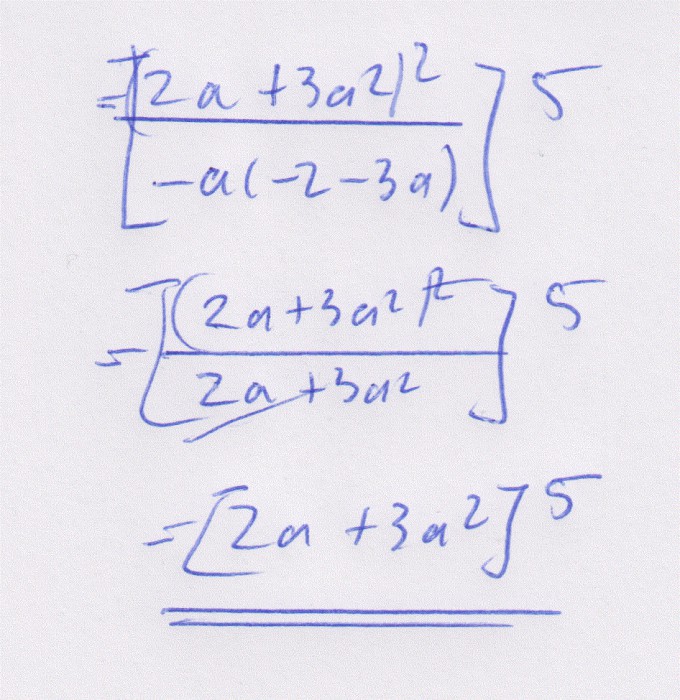 = [(2a + 3a²)² / -a(-2-3a)]⁵
= [(2a+3a²)² / 2a+3a²]⁵
= [2a + 3a²]⁵